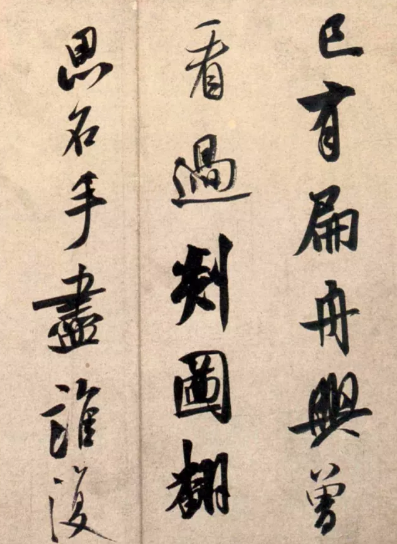 已有扁舟興曾
看過剡圖翻
思名手盡誰復